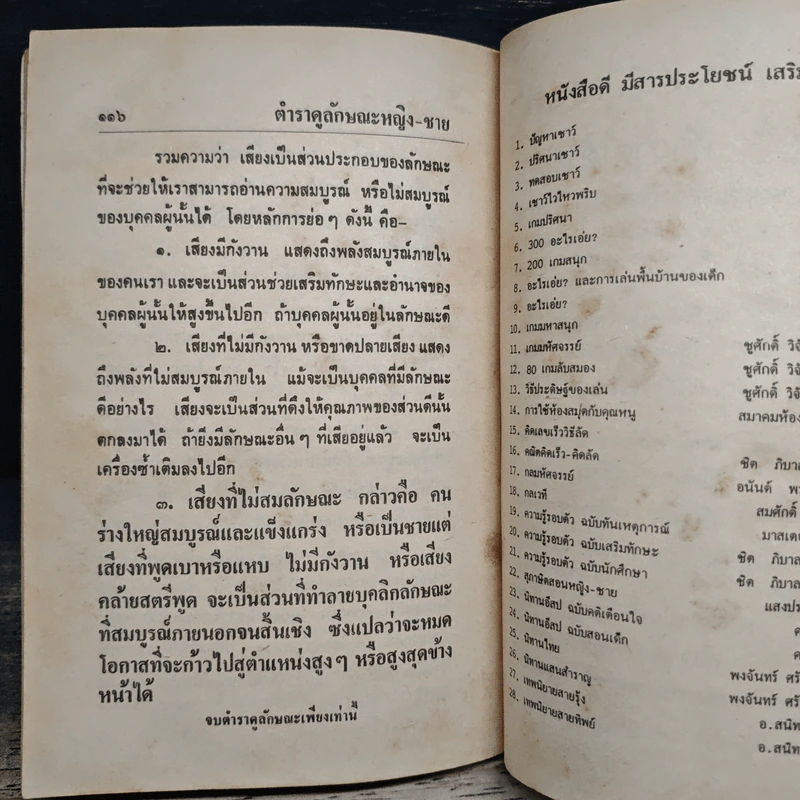 ๑๑๖ ตำราดูลักษณะหญิง-ชาย
รวมความว่า เสียงเป็นส่วนประกอบของลักษณะ
ที่จะช่วยให้เราสามารถอ่านความสมบูรณ์ หรือไม่สมบูรณ์
ของบุคคลผู้นั้นได้ โดยหลักการย่อๆ ดังนี้ คือ-
๑. เสียงมีกังวาน แสดงถึงพลังสมบูรณ์ภายใน
ของคนเรา และจะเป็นส่วนช่วยเสริมทักษะและอำนาจของ
บุคคลผู้นั้นให้สูงขึ้นไปอีก ถ้าบุคคลผู้นั้นอยู่ในลักษณะดี
๒. เสียงที่ไม่มีกังวาน หรือขาดปลายเสียง แสดง
ถึงพลังที่ไม่สมบูรณ์ภายใน แม้จะเป็นบุคคลที่มีลักษณะ
ดีอย่างไร เสียงจะเป็นส่วนที่ดึงให้คุณภาพของส่วนดีนั้น
ตกลงมาได้ ถ้ายิ่งมีลักษณะอื่นๆ ที่เสียอยู่แล้ว จะเป็น
เครื่องซ้ำเติมลงไปอีก
๓. เสียงที่ไม่สมลักษณะ กล่าวคือ คน
ร่างใหญ่สมบูรณ์และแข็งแกร่ง หรือเป็นชายแต่
เสียงที่พูดเบาหรือแหบ ไม่มีกังวาน หรือเสียง
คล้ายสตรีพูด จะเป็นส่วนที่ทำลายบุคลิกลักษณะ
ที่สมบูรณ์ภายนอกจนสิ้นเชิง ซึ่งแปลว่าจะหมด
โอกาสที่จะก้าวไปสู่ตำแหน่งสูงๆ หรือสูงสุดข้าง
หน้าได้
จบตำราดูลักษณะเพียงเท่านี้
หนังสือดี มีสารประโยชน์ เสริม
1. ปัญหาเชาว์
2. ปริศนาเชาว์
3. ทดสอบเชาว์
4. เชาว์ไวไหวพริบ
5. เกมปริศนา
6. 300 อะไรเอ่ย?
7. 200 เกมสนุก
8. อะไรเอ่ย? และการเล่นพื้นบ้านของเด็ก
9. อะไรเอ่ย?
10. เกมมหาสนุก
11. เกมมหัศจรรย์ ชูศักดิ์ วิจั
12. 80 เกมลับสมอง ชูศักดิ์ วิจั
13. วิธีประดิษฐ์ของเล่น ชูศักดิ์ วิจั
14. การใช้ห้องสมุดกับคุณหนู สมาคมห้อง
15. คิดเลขเร็ววิธีลัด
16. คณิตคิดเร็ว-คิดลัด ชิต ภิบาล
17. กลมหัศจรรย์ อนันต์ พ
18. กลเวที สมศักดิ์
19. ความรู้รอบตัว ฉบับทันเหตุการณ์ มาสเตอ
20. ความรู้รอบตัว ฉบับเสริมทักษะ ชิต ภิบาล
21. ความรู้รอบตัว ฉบับนักศึกษา ชิต ภิบาล
22. สุภาษิตสอนหญิง-ชาย แสงประ
23. นิทานอีสป ฉบับคติเตือนใจ
24. นิทานอีสป ฉบับสอนเด็ก
25. นิทานไทย พงจันทร์ ศรั
26. นิทานแสนสำราญ พงจันทร์ ศรั
27. เทพนิยายสายรุ้ง อ.สนิท
28. เทพนิยายสายทิพย์ อ.สนิท